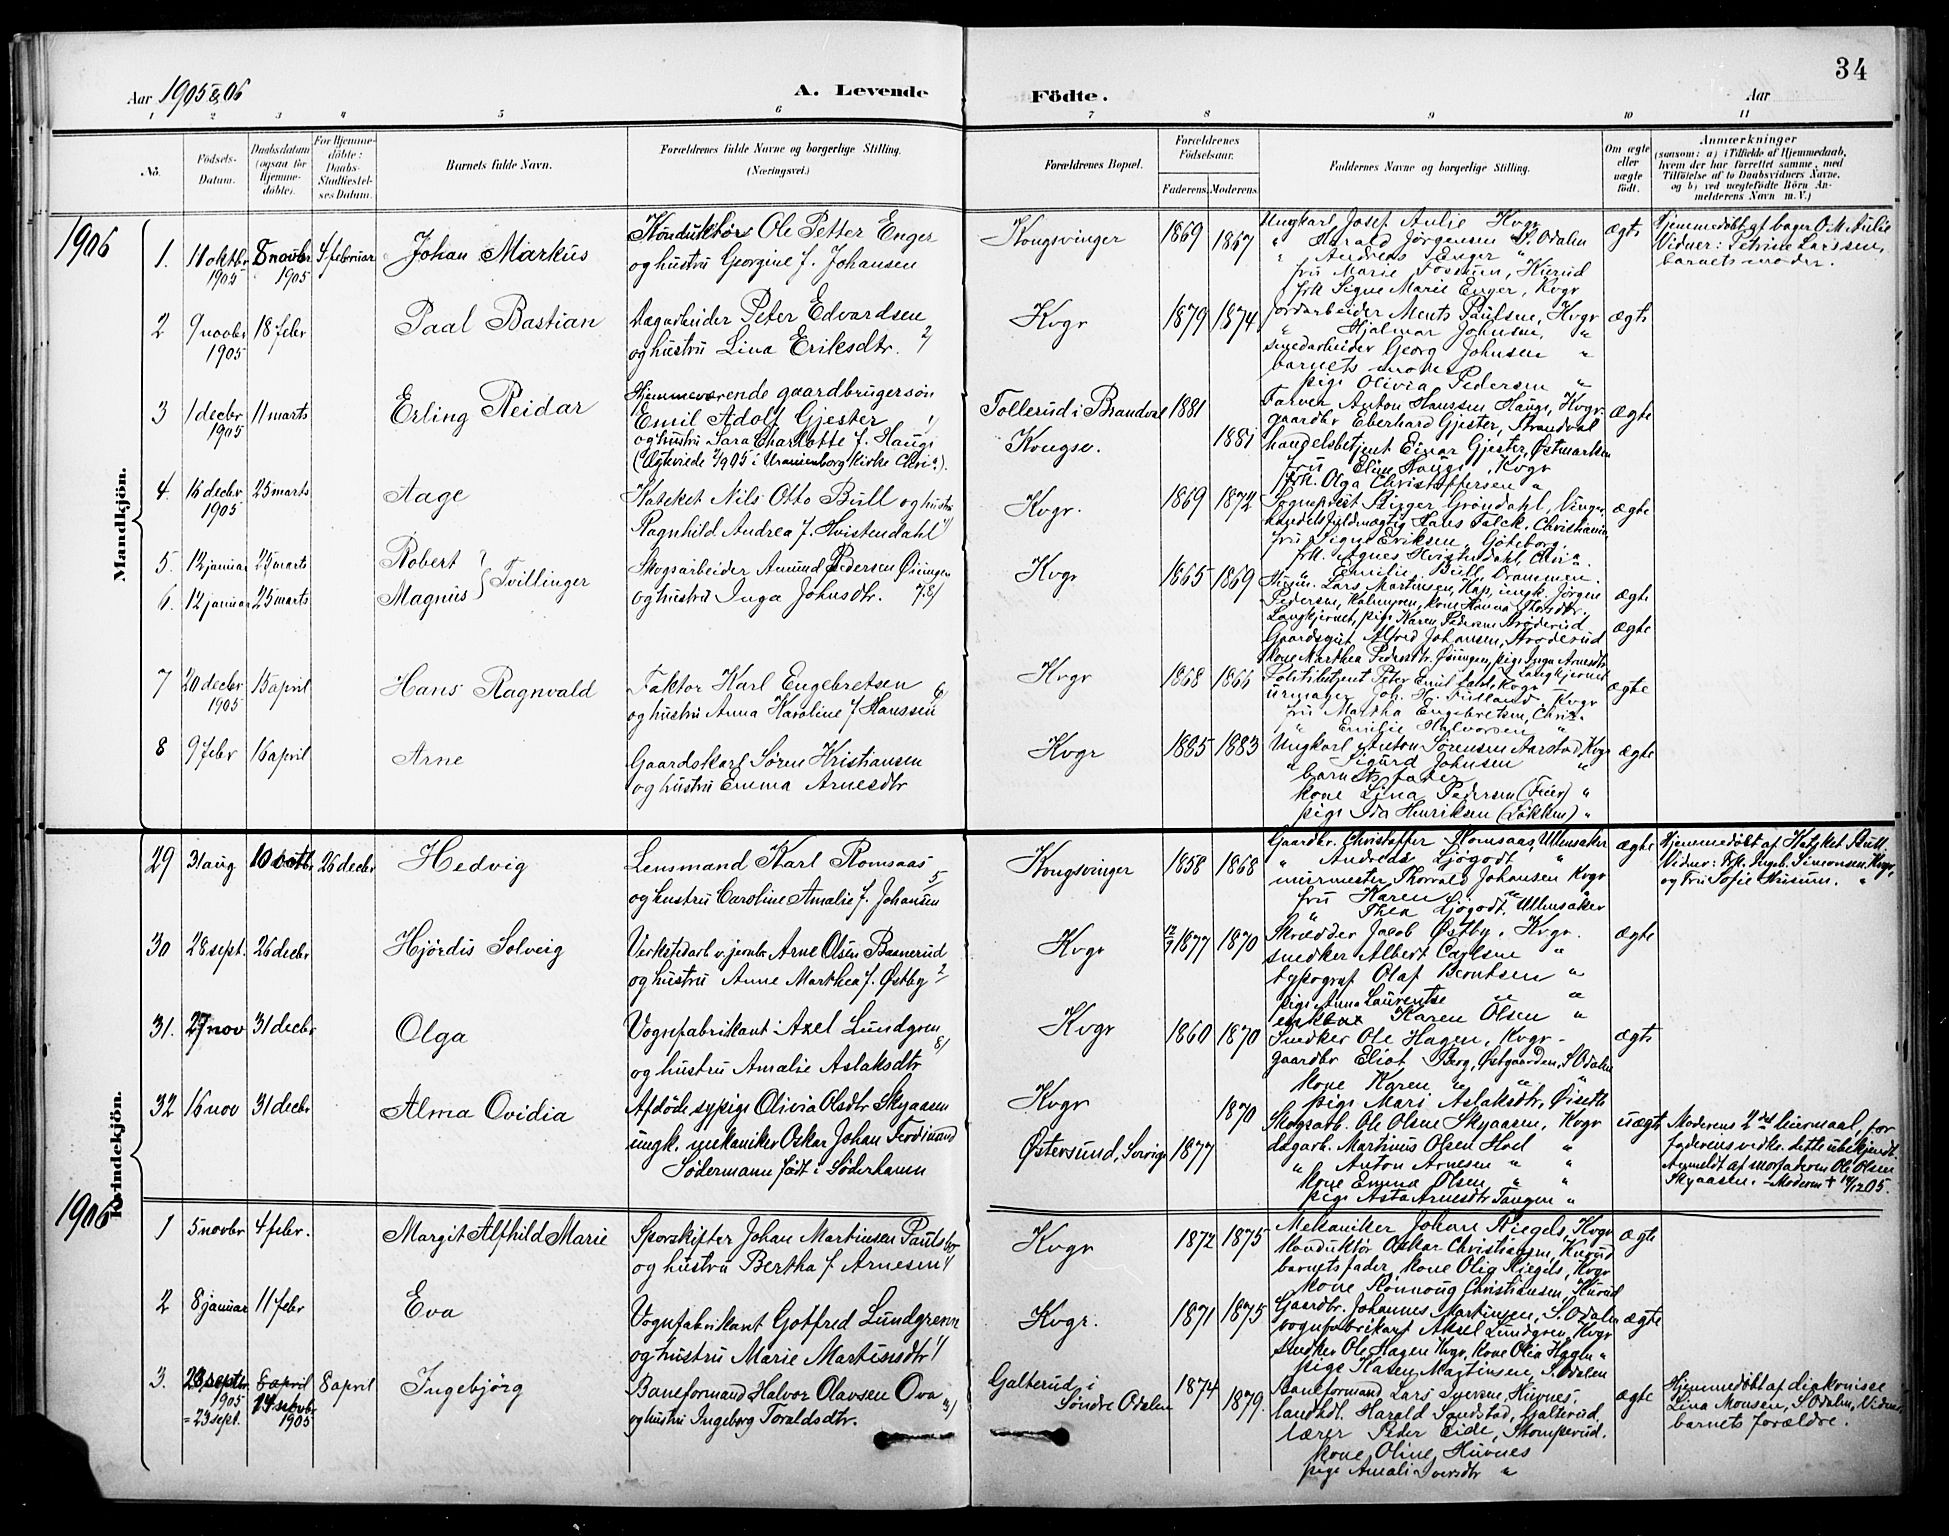 34
Aar 1905 & 06
A. Levende Födte.
Aar
1 2 3 4 5 6 7 8 9 10 11
No.
Födsels-Datum.
Daabsdatum (ogsaa for Hjemmedöbte).
For Hjemmedöbte: Daabs-Stadfæstelses Datum.
Barnets fulde Navn.
Forældrenes fulde Navne og borgerlige Stilling. (Næringsvei.)
Forældrenes Bopæl.
Forældrenes Födselsaar.
Faderens. Moderens.
Faddernes Navne og borgerlige Stilling.
Om ægte eller uægte födt.
Anmærkninger
(saasom: a) i Tilfælde af Hjemmedaab, hvem der har forrettet samme, med Tilföielse af to Daabsvidners Navne, og b) ved uægtefödte Börn Anmelderens Navn m. V.)
1906
Mandkjön.
1. 11 oktbr 1905 8 novbr 1905 4 februar Johan Markus
Konduktør Ole Petter Enger
og hustru Georgine f. Johansen
Kongsvinger 1869 1867
Ungkarl Josef Aulie Kvgr
" Harald Jörgensen S. Odalen
" Andreas Enger "
fru Marie Fossum, Kurud
frk Signe Marie Enger, Kvgr
ægte
Hjemmedöbt af bager O. M. Aulie
Vidner: Petrine Larssen,
barnets moder.
2 9 novbr 1905 18 febr Paal Bastian
Dagarbeider Peter Edvardsen
og hustru Lina Eriksdtr. 2/
Kvgr 1879 1874
Jordarbeider Ments Paulsen, Kvgr
" Hjalmar Johnsen, "
smedarbeider Georg Johnsen "
barnets moder
pige Olivia Pedersen "
ægte
3 1 decbr 1905 11 marts Erling Reidar
Hjemmeværende gaardbrugersøn
Emil Adolf Gjester 1/
og hustru Sara Charlotte f. Hauge
(Ægteviede 2/9 05 i Uranienborg kirke Chri.a).
Tollerud i Brandval 1881
Kongsv. 1881
Farver Anton Hanssen Hauge, Kvgr.
gaardbr Eberhard Gjester, Brandval
handelsbetjent Einar Gjester, Østmarken
fru Eline Hauge, Kvgr
frk. Olga Christoffersen "
ægte
4. 16 decbr 1905 25 marts Aage
Kateket Nils Otto Bull og hustru
Ragnhild Andrea f. Hvistendahl 1/
Kvgr. 1869 1872
Sogneprest Bigger Grøndahl, Vinger
handelsfuldmægtig Hans Falck, Christiania
fru Signe Eriksen, Göteborg
frk. Agnes Hvistendahl, Chri.a
" Emilie Bull, Drammen.
ægte
5. 12 januar 25 marts Robert
6. 12 januar 25 marts Magnus } Tvillinger
Skogsarbeider Amund Pedersen Øiungen
og hustru Inga Johnsdtr. 7.8/
Kvgr 1865 1869
Husm. Lars Martinsen, Hap, ungk. Jörgen
Pedersen, Kolmoren, kone Hanna Thorsdtr.
Langkjernet, pige Karen Pedersen Strøderud
Gaardsgut Alfred Johansen, Strøderud
kone Marthea Pedersdtr. Øiungen, pige Inga Arnesdtr
Langkjernet
ægte
ægte
7 20 decbr 1905 15 april Hans Ragnvald
Faktor Karl Engebretsen 6/
og hustru Anna Karoline f Hanssen
Kvgr 1868 1866
Politibetjent Peter Emil Lahl, Kvgr
urmager Joh. H. Fulland, Kvgr
fru Martha Engebretsen, Chri.a
" Emilie Halvorsen "
ægte
8 9 febr 16 april Arne
Gaardskarl Sören Kristiansen
og hustru Emma Arnesdtr
Kvgr 1885 1883
Ungkarl Anton Sørensen Aarstad, Kvgr
" Sigurd Johnsen "
barnets fader
kone Lina Pedersen (Feier) "
pige Ida Henriksen (Løkken) "
ægte
Kvindekjön.
29 31 aug 10 oktbr 26 decbr Hedvig
Lensmand Karl Romsaas
og hustru Caroline Amalie f. Johansen 5/
Kongsvinger 1858 1868
Gaardbr. Christoffer Romsaas, Ullensaker
" Andreas Ljögodt "
murmester Thorvald Johansen Kvgr
fru Karen " "
" Thea Ljögodt, Ullensaker
ægte
Hjemmedöbt af Kateket Bull.
Vidner: Frk. Ingeb. Simonsen, Kvgr,
og Fru Sofie Husum. "
30 28 sept. 26 decbr Hjördis Solveig
Verkstedarb v. jernb. Arne Olsen Banerud
og hustru Anne Marthea f. Østby 2/
Kvgr 12/9 1877 1870
Skrædder Jacob Østby, Kvgr.
snedker Albert Carlsen "
typograf Olaf Berntsen "
pige Anna Laurentse "
enke Karen Olsen "
ægte
31. 27 nov 31 decbr Olga
Vognfabrikant Axel Lundgren 8/
og hustru Amalie Aslaksdtr
Kvgr 1860 1870
Snedker Ole Hagen, Kvgr-
gaardbr Eliot, Berg, Østgaarden, S. Odalen
kone Karen " " "
pige Mari Aslaksdtr, Øiseth
ægte
32 16 nov 31 decbr Alma Ovidia
Afdöde sypige Olivia Olsdtr Skyaasen
ungk. mekaniker Oskar Johan Ferdinand
Södermann født i Söderhamn
Kvgr 1870
Østersund, Sverige 1877
Skogsarb. Ole Olsen Skyaasen, Kvgr
dagarb. Martinus Olsen Hoel "
" Anton Arnesen " "
kone Emma Olsen " "
pige Asta Arnesdtr Tangen "
uægte
Moderens 2det leiermaal, for
faderens vedk. dette ubekjendt.
Anmeldt af morfaderen Ole Olsen
Skyaasen. - Moderen † 14/12 05.
1906
1 5 novbr 4 febr. Margit Alfhild Marie
Sporskifter Johan Martinsen Paulsbo
og hustru Bertha f Arnesen 4/
Kvgr 1872 1875
Mekaniker Johan Riegels, Kvgr
Konduktør Oskar Christiansen, Kurud
barnets fader, kone Olia Riegels, Kvgr
kone Rønnoug Christiansen, Kurud
ægte
2 8 januar 11 febr Eva
Vognfabrikant Gotfred Lundgrenn
og hustru Marie Martinsdtr 1/
Kvgr. 1871 1875
Gaardbr. Johannes Martinsen, S. Odalen
vognfabrikant Aksel Lundgren, Kvgr
snedker Ole Hagen Kvgr, kone Olia Hagen "
pige Karen Martinsen, S. Odalen
ægte
3. 23 septbr 1905 = 23 sept. 8 april 14 novbr 1905 8 april Ingebjörg
Baneformand Halvor Olavsen Ova 3/
og hustru Ingeborg Toraldsdtr.
Galterud i Söndre Odalen 1874 1879.
Baneformand Lars Syversen, Huvnes,
landhdl. Harald Sandstad, Galterud,
lærer Peder Eide, Stomperud.
kone Oline Huvnes
pige Amalie Iversdtr "
ægte
Hjemmedöbt af diakonisse
Lina Monsen, S. Odalen, Vidner
barnets forældre.